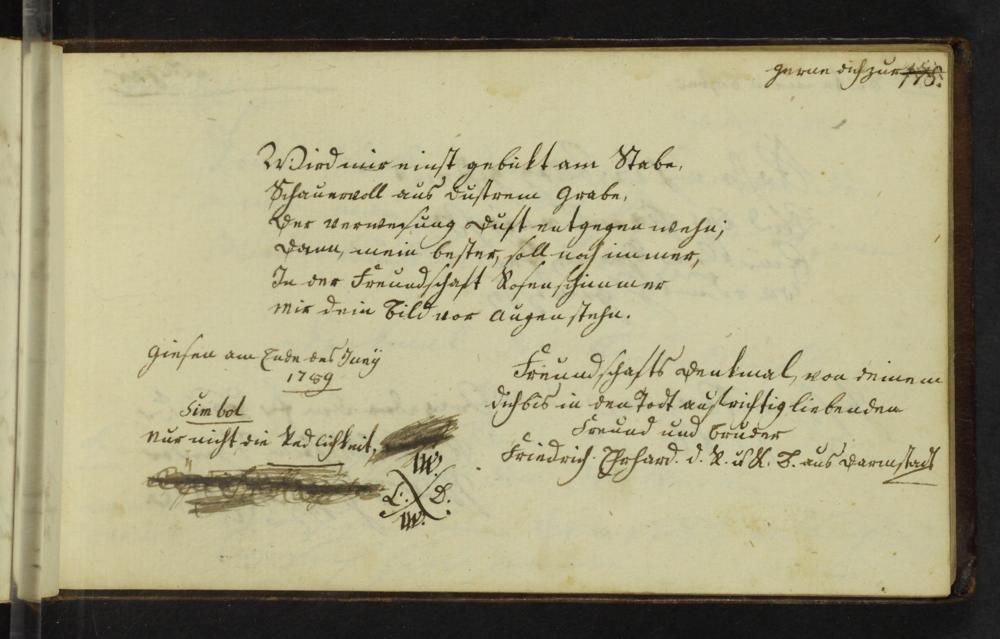 gerne dich zur 175.
Wird mir einst gebükt am Stabe,
Schauervoll aus düstrem Grabe,
Der Verwesung Duft entgegen wehn;
Dann, mein bester, soll noch immer,
In der Freundschaft Rosenschimmer
mir dein Bild vor Augen stehn.
Giesen am Ende des Juny
1789
Simbol
Nur nicht die Redlichkeit,
Freundschafts Denkmal, von deinem
dich bis in den Todt aufrichtig liebenden
Freund und Bruder
Friedrich Ehrhard. d. R. u. B. aus Darmstadt